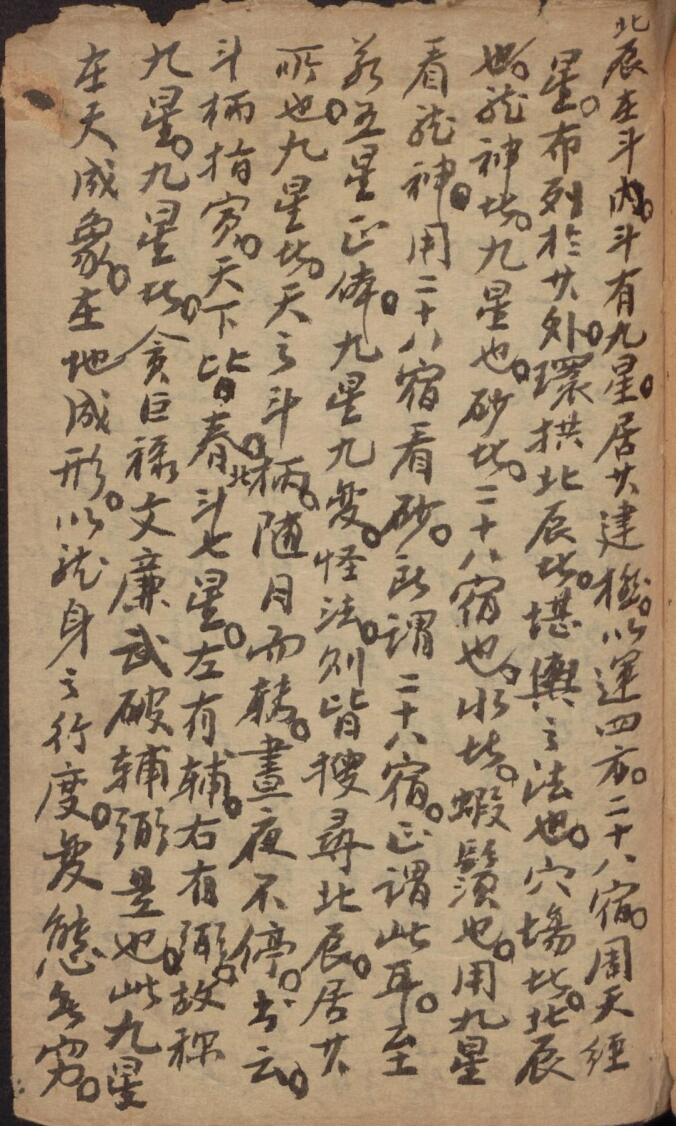 北辰在斗内。斗有九星。居其建極。以運四方。二十八宿。周天經
星。布列於其外。環拱北辰者。堪輿之法也。穴場者。北辰
也。龍神者。九星也。砂者。二十八宿也。水者。蝦鬚也。用九星
看龍神。用二十八宿看砂。所謂二十八宿。正謂此耳。至
若五星正体。九星九变。怪法。則皆搜尋北辰。居其
所也。九星者。天之斗柄。随月而轉。晝夜不停。書云。
斗柄指寅。天下皆春。北斗七星。左有輔。右有弼。故称
九星。九星者。貪巨祿文廉武破輔弼是也。此九星
在天成象。在地成形。以龍身之行度。变態無窮。